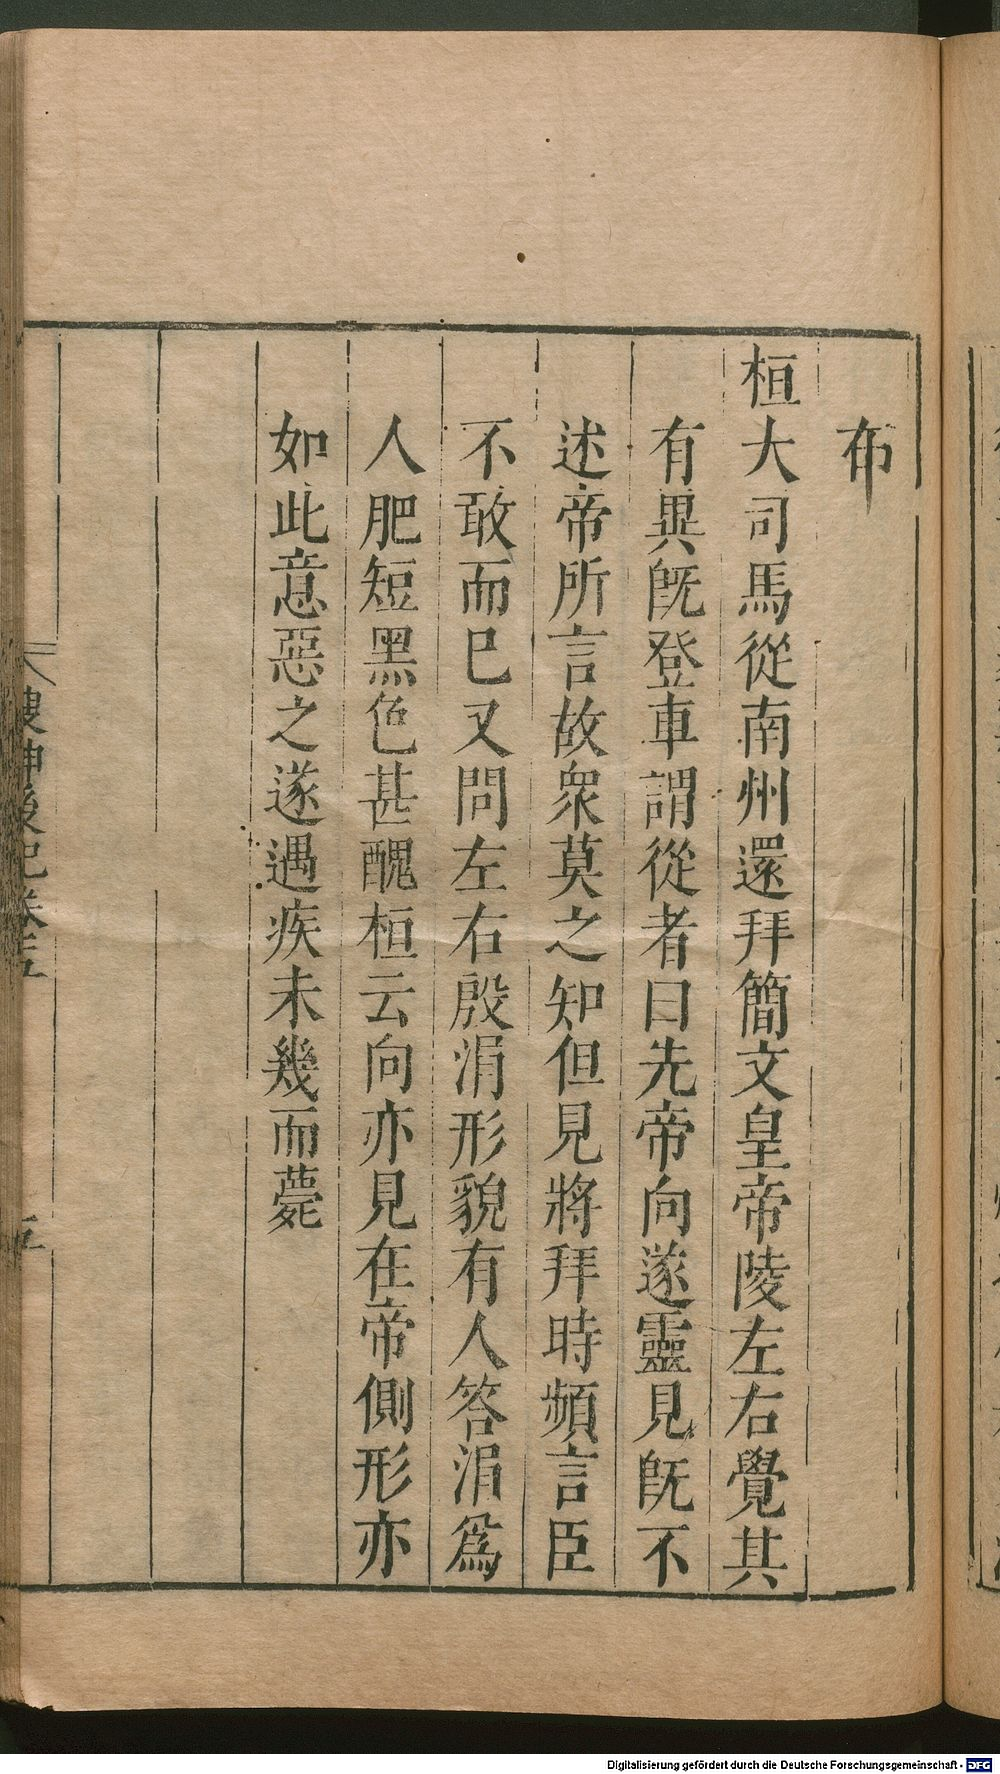 布
桓大司馬從南州還拜簡文皇帝陵左右覺其
有異旣登車謂從者曰先帝向遂靈見旣不
述帝所言故衆莫之知但見將拜時頻言臣
不敢而巳又問左右殷涓形貌有人答涓爲
人肥短黑色甚醜桓云向亦見在帝側形亦
如此意惡之遂遇疾未幾而薨
搜神後記卷三
五
Digitalisierung gefördert durch die Deutsche Forschungsgemeinschaft - DFG